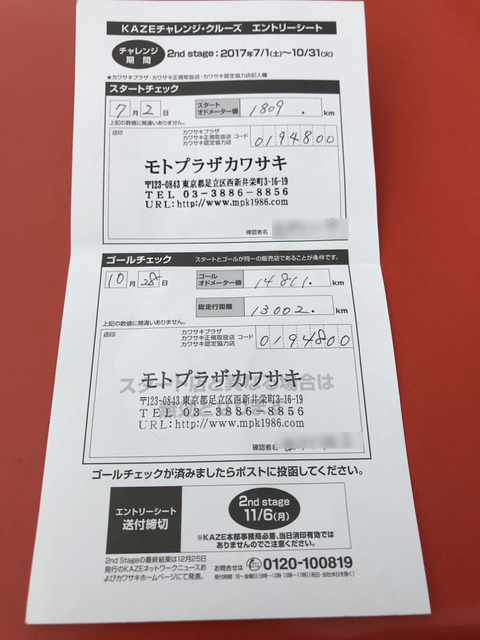 KAZEチャレンジ・クルーズ エントリーシート
チャレンジ期間 2nd stage:2017年7/1(土)〜10/31(火)
★カワサキプラザ・カワサキ正規取扱店・カワサキ認定協力店記入欄
スタートチェック
7月2日 スタートオドメーター値 1809. km
上記の数値に間違いありません。
店印 カワサキプラザ カワサキ正規取扱店 カワサキ認定協力店 コード 0194800
モトプラザカワサキ
〒123-0843 東京都足立区西新井栄町3-16-19
TEL 03-3886-8856
URL:http://www.mpk1986.com
確認者名
ゴールチェック スタートとゴールが同一の販売店であることが条件です。
10月28日 ゴールオドメーター値 14811. km
総走行距離 13002. km
上記の数値に間違いありません。
店印 カワサキプラザ カワサキ正規取扱店 カワサキ認定協力店 コード 0194800
スタート店と異なる場合は
モトプラザカワサキ
〒123-0843 東京都足立区西新井栄町3-16-19
TEL 03-3886-8856
URL:http://www.mpk1986.com
確認者名
ゴールチェックが済みましたらポストに投函してください。
エントリーシート送付締切
2nd stage
11/6(月)
※KAZE本部事務局必着、当日消印有効ではありませんのでご注意ください。
2nd Stageの最終結果は12月25日
発行のKAZEネットワークニュースお
よびカワサキホームページにて発表。
お問合せは 0120-100819